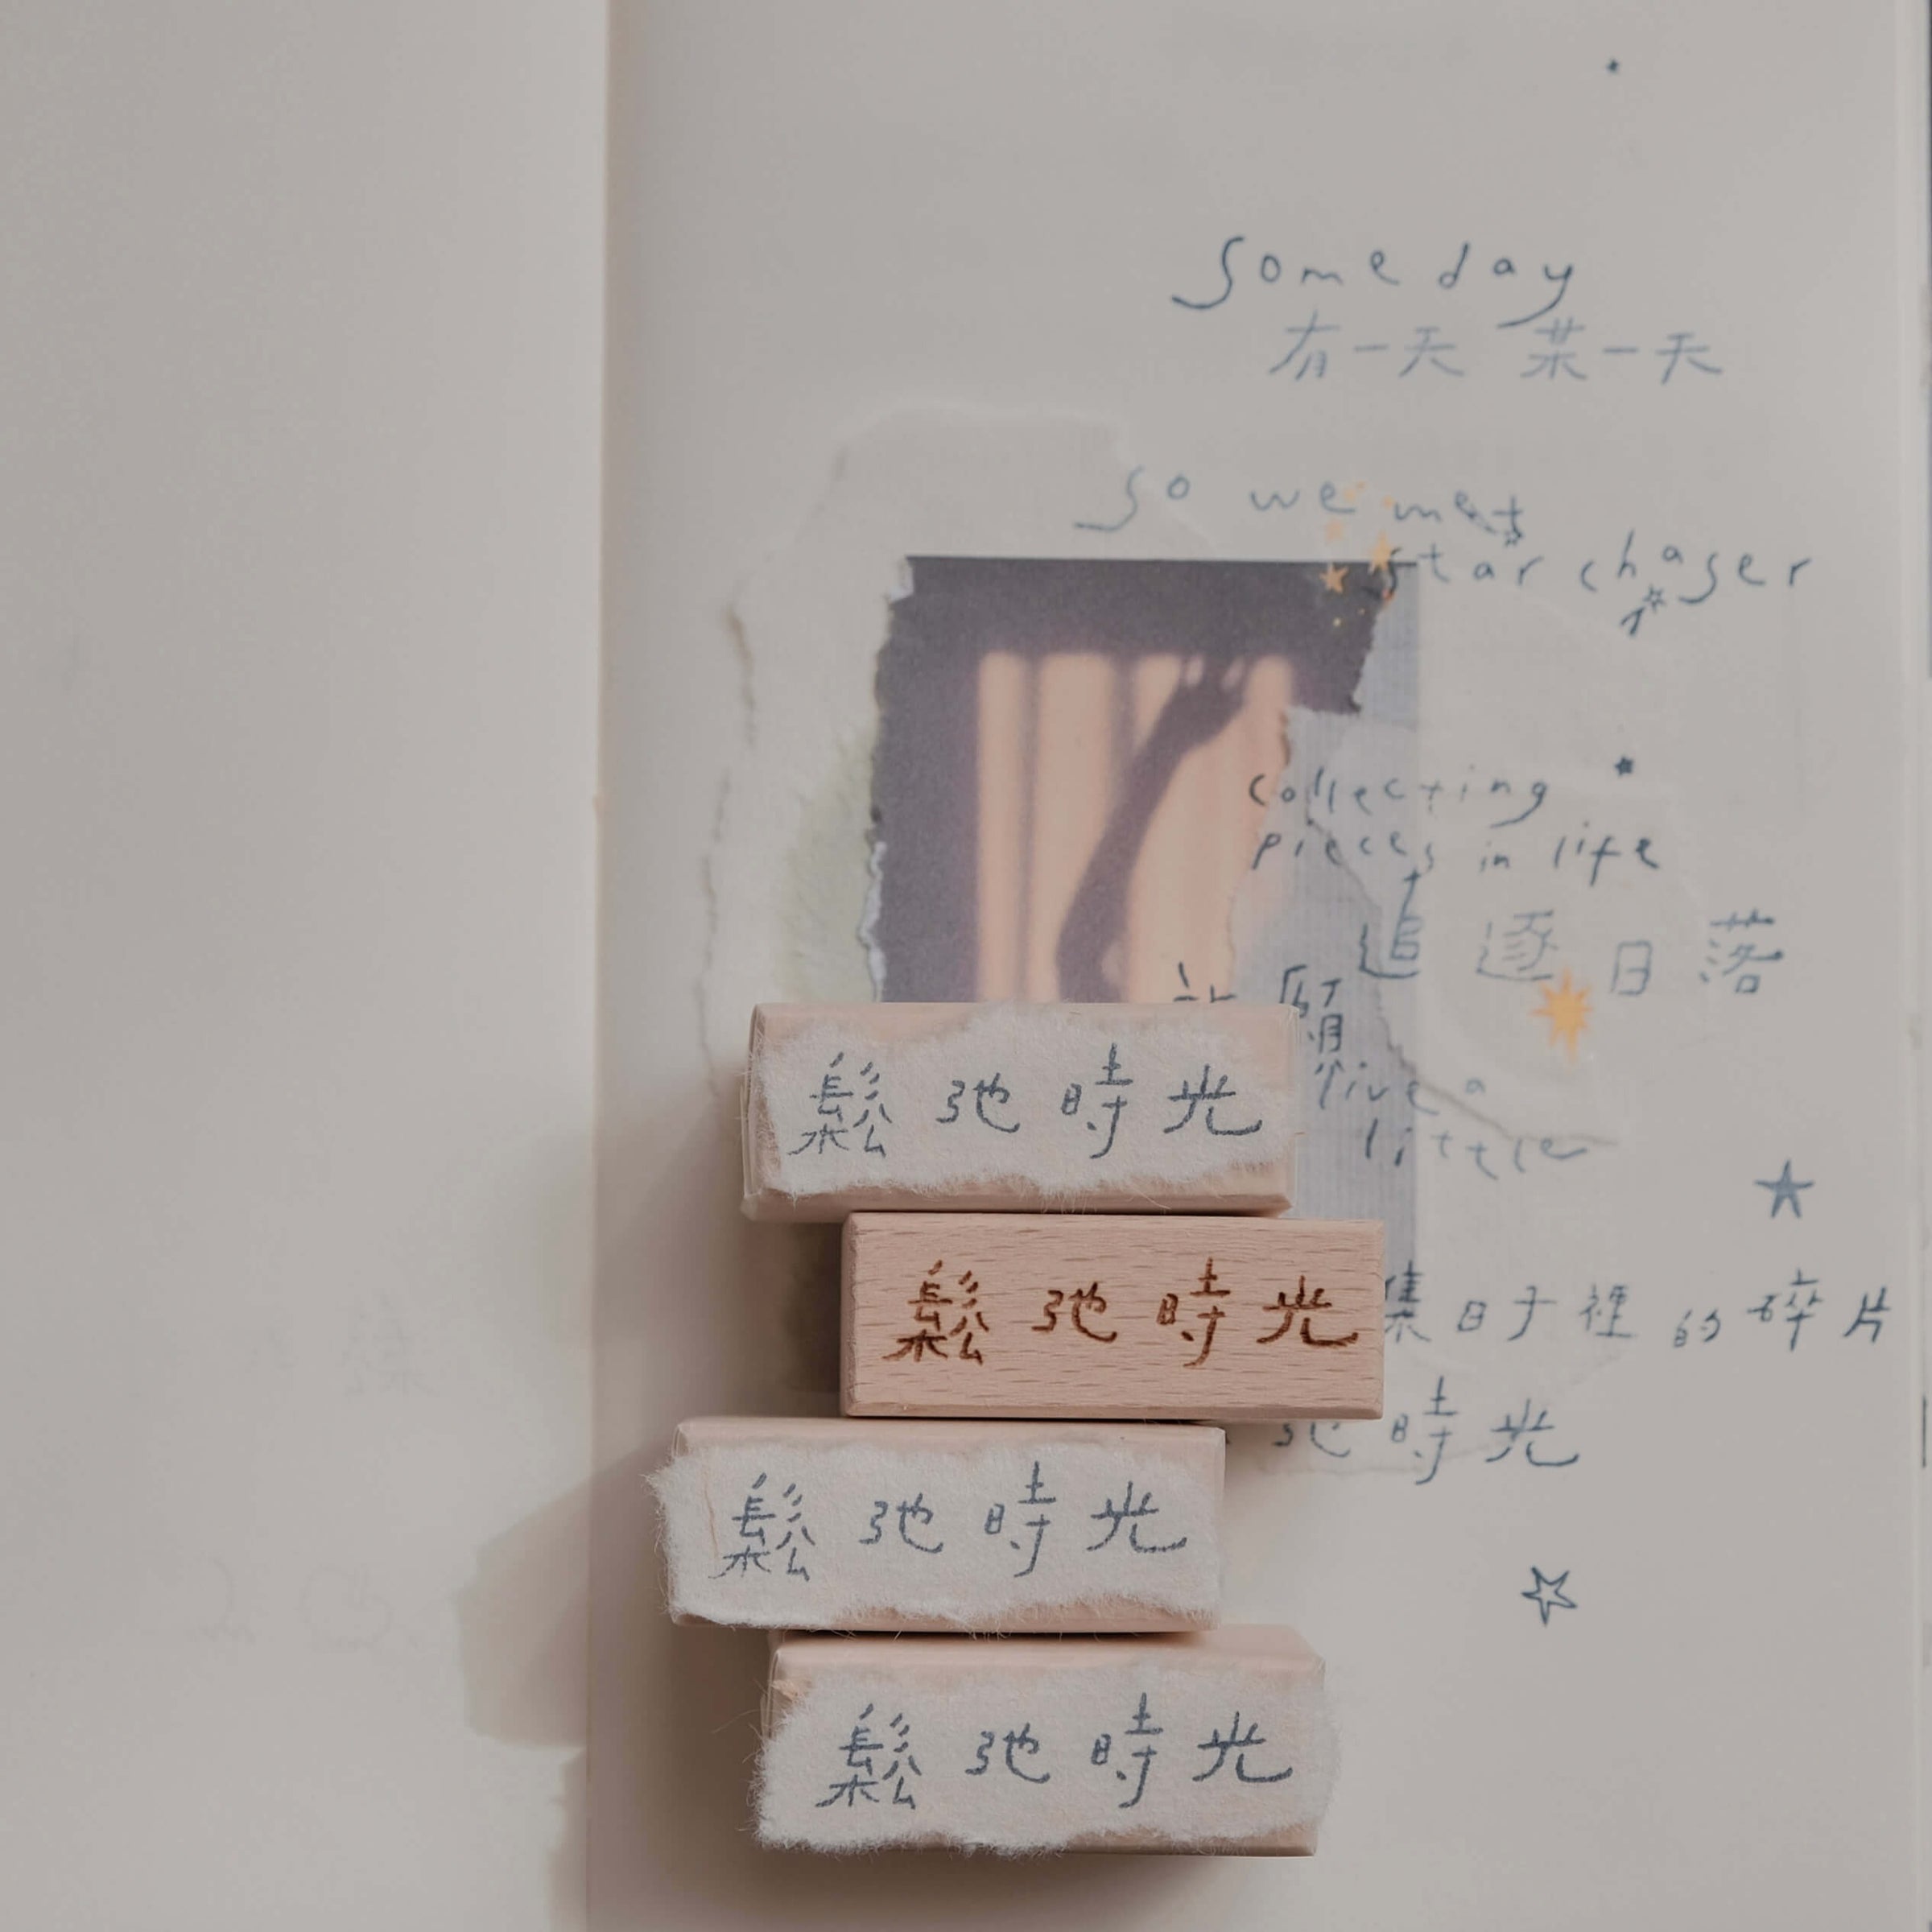 someday
有一天 某一天
so we met
star chaser
collecting
pieces in life
追逐日落
願
live a
little
鬆弛時光
鬆弛時光
集日子裡的碎片
弛時光
鬆弛時光
鬆弛時光